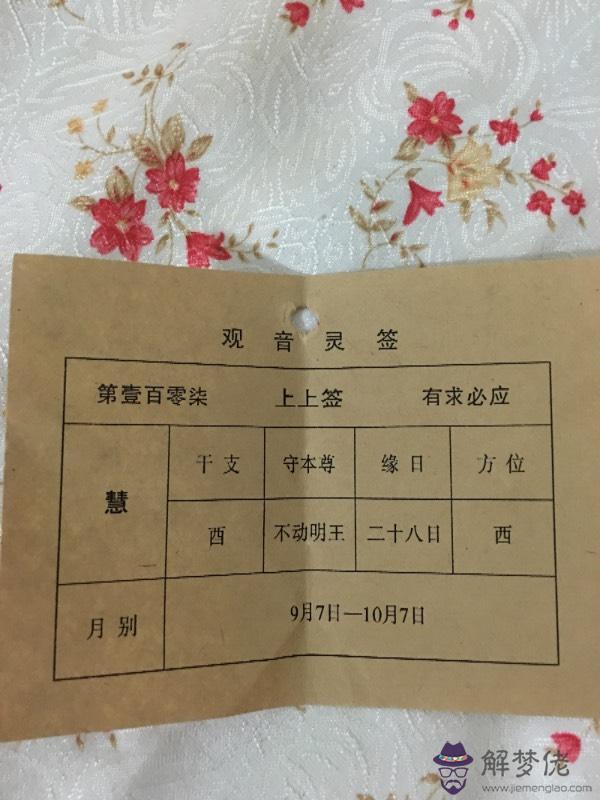 观音灵签
第壹百零柒 上上签 有求必应
慧 干支 守本尊 缘日 方位
酉 不动明王 二十八日 西
月别 9月7日—10月7日
解梦佬
www.jiemenglao.com